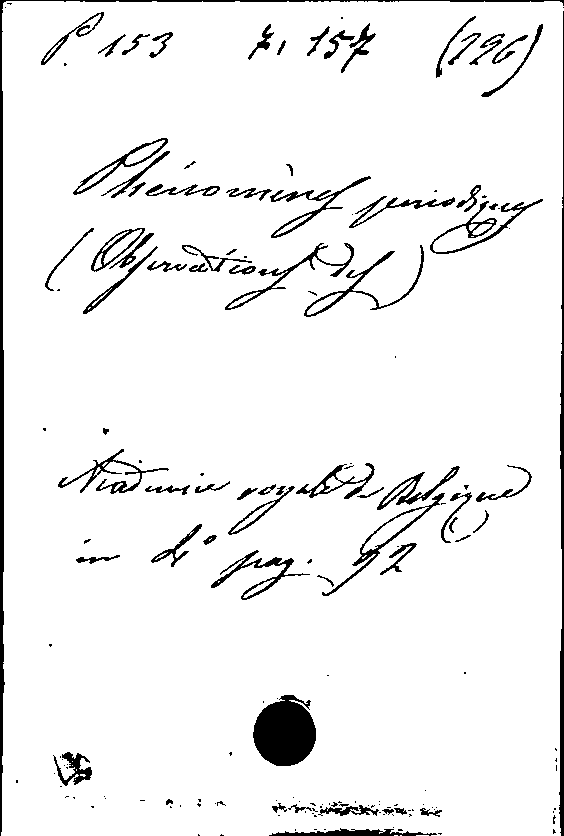 P. 153 7, 157 (226)
Phénomènes périodiques
(Observations des)
Académie royale de Belgique
in 4° pag. 92